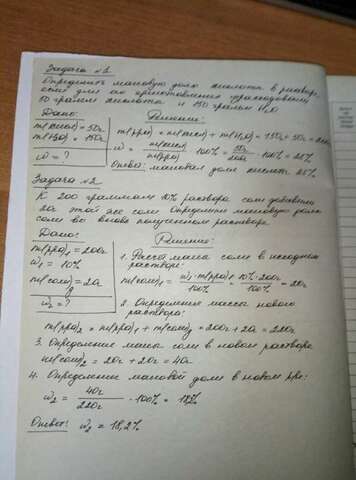 Задача №1
Определить массовую долю кислоты в растворе,
если для его приготовления израсходовали
50 грамм кислоты и 150 грамм H₂O
Дано: Решение:
m(кисл) = 50г m(рра) = m(кисл) + m(H₂O) = 150г + 50г = 200г
m(H₂O) = 150г ω = m(кисл)/m(рра) · 100% = 50г/200г · 100% = 25%
ω = ? Ответ: массовая доля кислоты 25%
Задача №2
К 200 граммам 10% раствора соли добавили
2г этой же соли. Определите массовую долю
соли во вновь полученном растворе
Дано: Решение:
m(рра)₁ = 200г 1. Расчёт массы соли в исходном
ω₁ = 10% растворе:
m(соли)₂ = 2г m(соли)₁ = ω₁·m(рра)₁/100% = 10%·200г/100% = 20г
ω₂ = ? 2. Определение массы нового
раствора:
m(рра)₂ = m(рра)₁ + m(соли)₂ = 200г + 2г = 220г
3. Определение массы соли в новом растворе
m(соли)₂ = 20г + 20г = 40г
4. Определение массовой доли в новом рре:
ω₂ = 40г/220г · 100% = 18%
Ответ: ω₂ = 18,2%